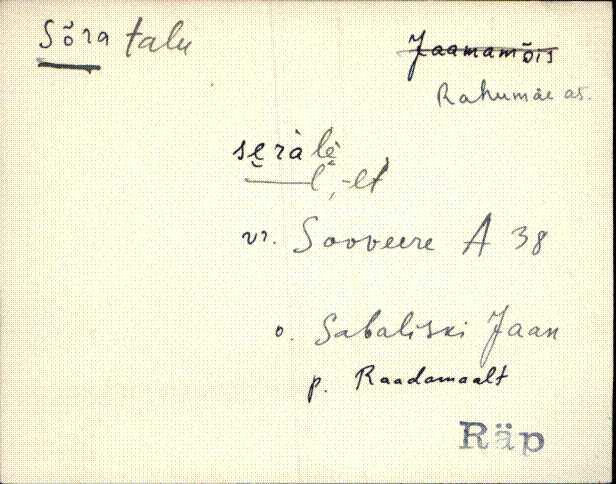 Sõra talu
Jaamamõis
Rahumäe as.
se̬ràlè̬
l, -lt
vr. Sooveere A 38
o. Sabaliski Jaan
p. Raadamaalt
Räp